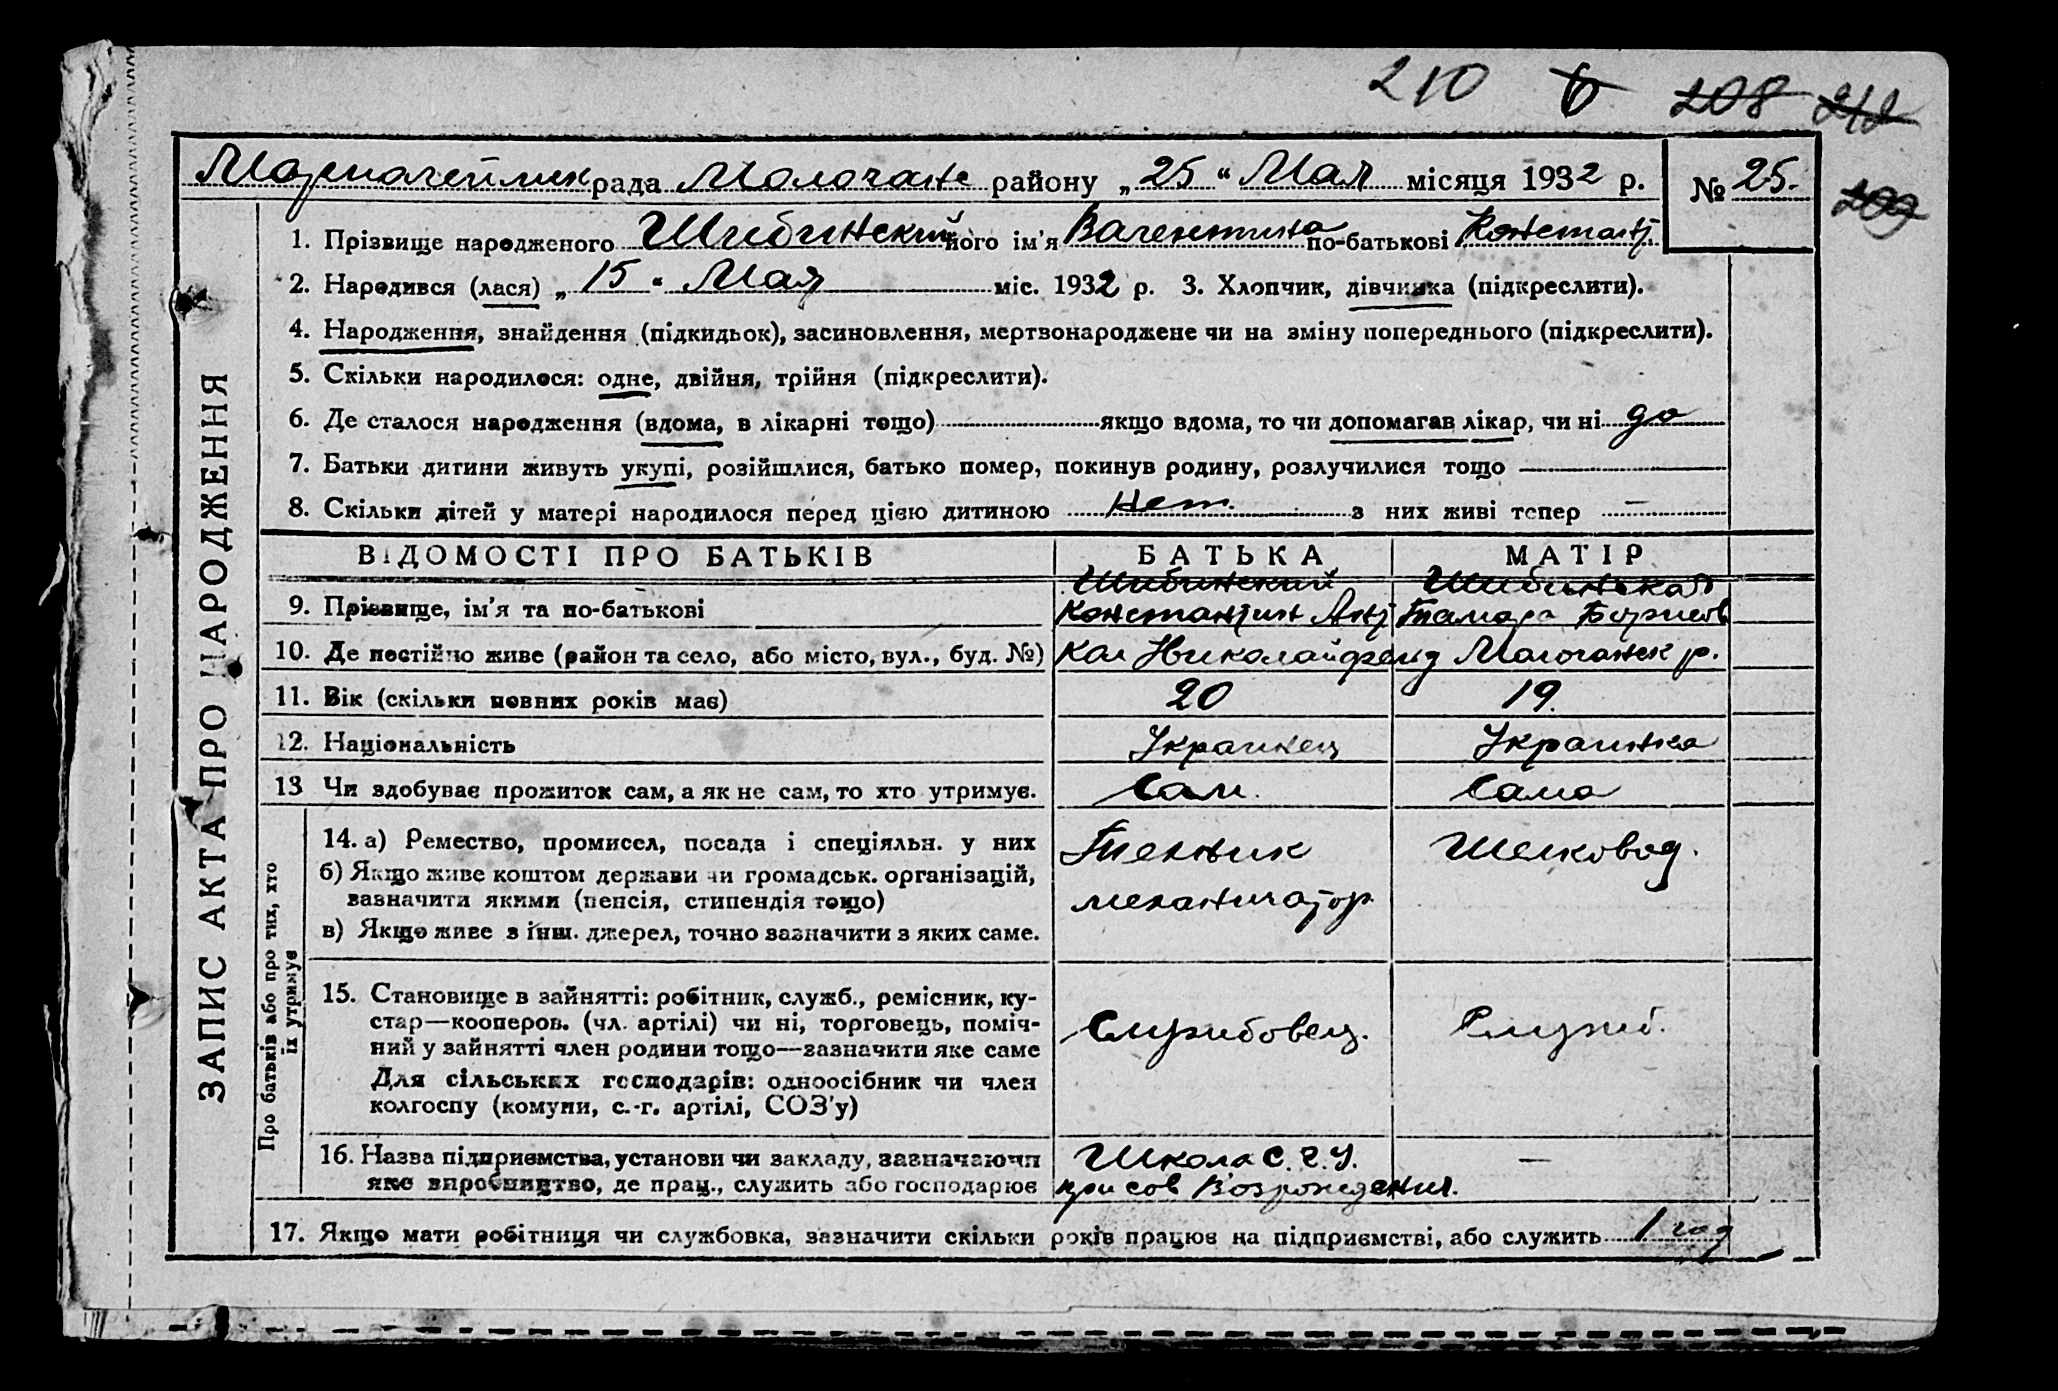 210 6 208 212
рада Молочанс району „25“ Мая місяця 1932 р. № 25.
209
1. Прізвище народженого Шибинский його ім'я Валентина по-батькові Констант
2. Народився (лася) „15“ Мая міс. 1932 р. 3. Хлопчик, дівчинка (підкреслити).
4. Народження, знайдення (підкидьок), засиновлення, мертвонароджене чи на зміну попереднього (підкреслити).
5. Скільки народилося: одне, двійня, трійня (підкреслити).
6. Де сталося народження (вдома, в лікарні тощо) якщо вдома, то чи допомагав лікар, чи ні да
7. Батьки дитини живуть укупі, розійшлися, батько помер, покинув родину, розлучилися тощо —
8. Скільки дітей у матері народилося перед цією дитиною нет. з них живі тепер —
ВІДОМОСТІ ПРО БАТЬКІВ БАТЬКА МАТІР
Шибинский Шибинская
9. Прізвище, ім'я та по-батькові Константин Ант Тамара Борисов
10. Де постійно живе (район та село, або місто, вул., буд. №) Кол Николайфельд Молочанск р.
11. Вік (скільки повних років має) 20 19.
12. Національність Украинец Украинка
13 Чи здобуває прожиток сам, а як не сам, то хто утримує. Сам. Сама
14. а) Ремество, промисел, посада і спеціяльн. у них Техник Шелковод.
б) Якщо живе коштом держави чи громадськ. організацій,
зазначити якими (пенсія, стипендія тощо) механизатор
в) Якщо живе з інш. джерел, точно зазначити з яких саме.
15. Становище в зайнятті: робітник, служб., ремісник, ку-
стар—кооперов. (чл. артілі) чи ні, торговець, поміч- Служибовец. Служб.
ний у зайнятті член родини тощо—зазначити яке саме
Для сільських господарів: одноосібник чи член
колгоспу (комуни, с.-г. артілі, СОЗ'у)
16. Назва підприємства, установи чи закладу, зазначаючи Школа С. Г. У. —
яке виробництво, де прац., служить або господарює при сов Возрождения.
17. Якщо мати робітниця чи службовка, зазначити скільки років працює на підприємстві, або служить 1 год
ЗАПИС АКТА ПРО НАРОДЖЕННЯ
Про батьків або про тих, хто
їх утримує